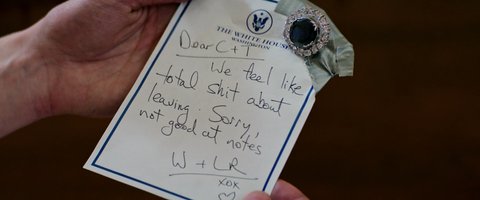 THE WHITE HOUSE
WASHINGTON
Dear C + T
We feel like
total shit about
leaving. Sorry,
not good at notes
W + LR
xox